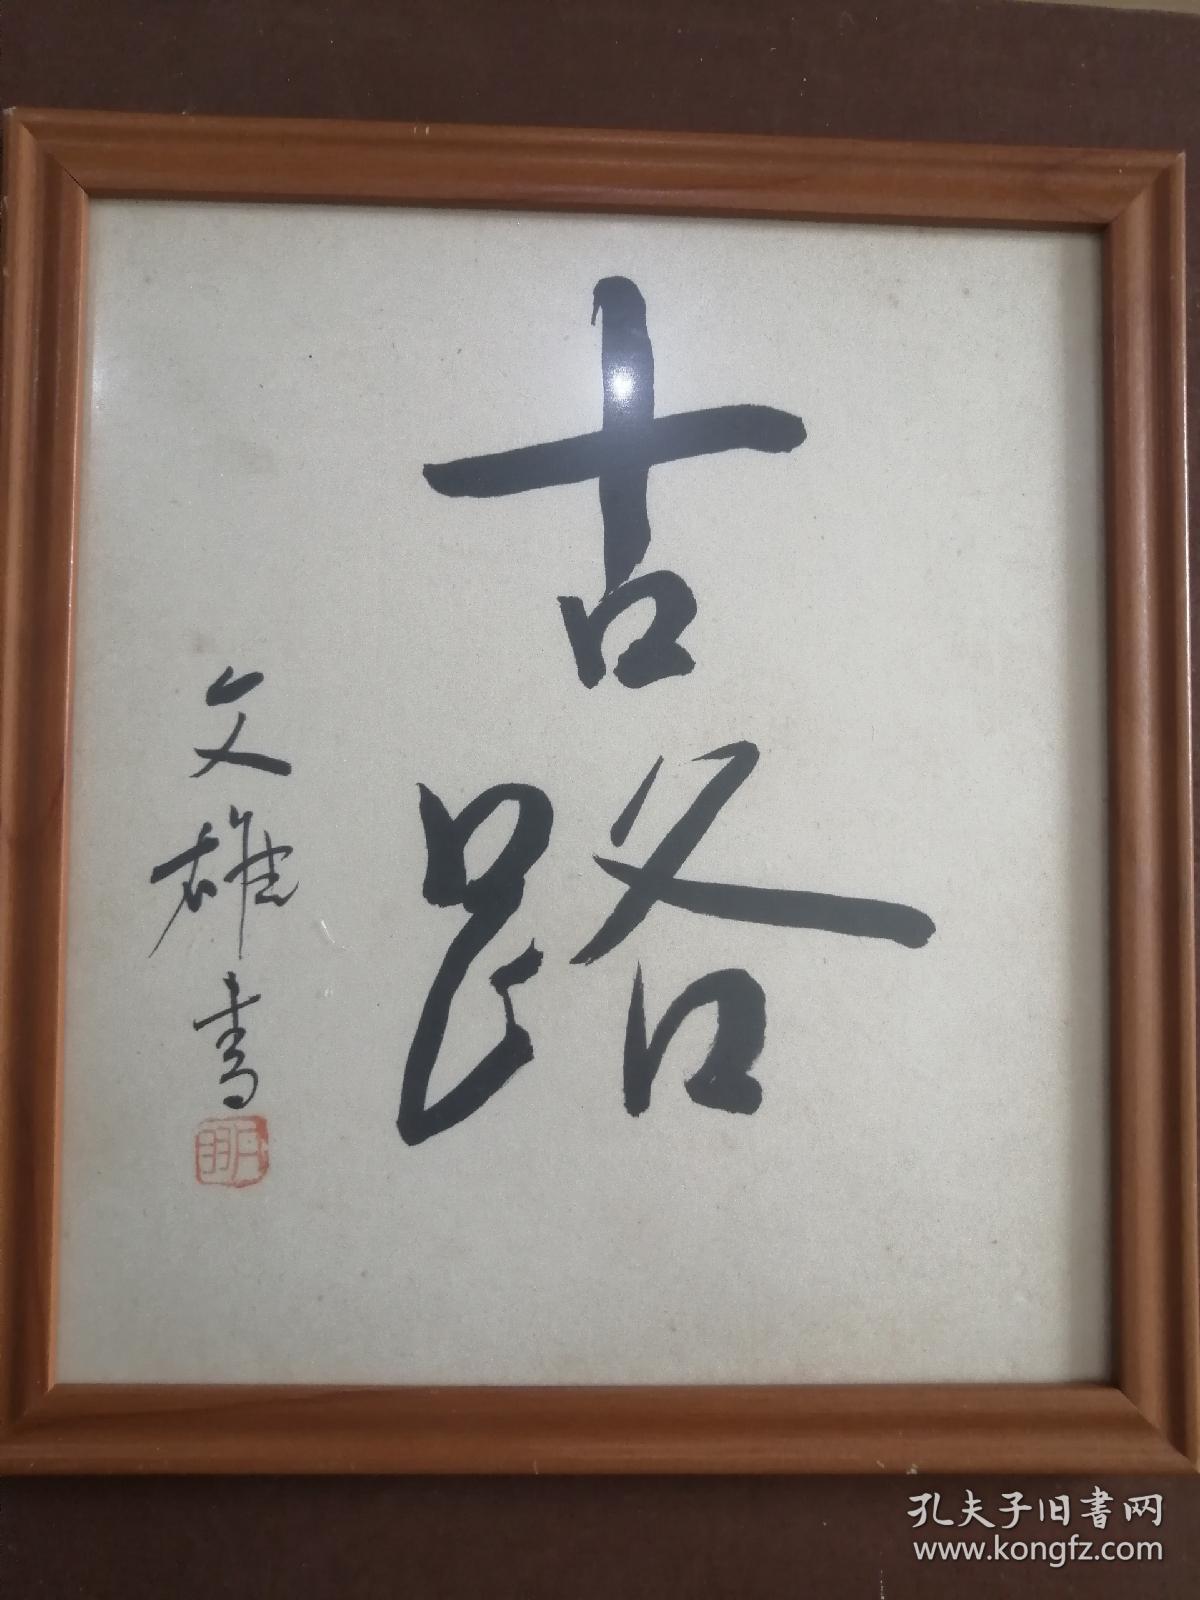 古路
文雄書
孔夫子旧書网
www.kongfz.com